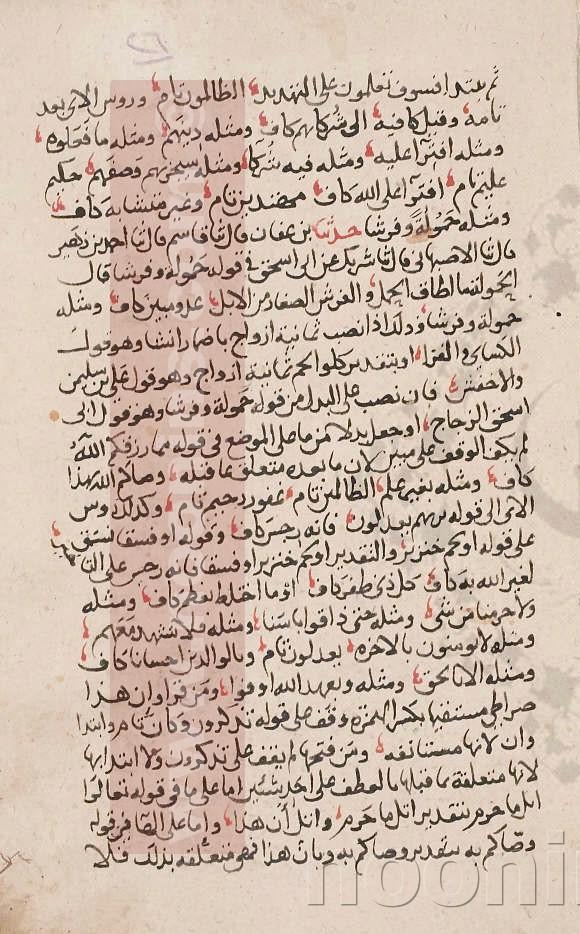 ثم يبتدا فسوف تعلمون على التهديد الظالمون تام وروس الاى بعد
تامة وقيل كافية الى شركائهم كاف ومثله دينهم ومثله ما فعلوه
ومثله افترا عليه ومثله فيه شركا ومثله سيجزيهم وصفهم حكيم
عليم تام افترا على الله كاف مهتدين تام وغير متشابه كاف
ومثله حمولة وفرشا حدثنا بن عفان قال ثنا قاسم قال ثنا احمد بن زهير
قال ثنا الاصبهانى قال ثنا شريك عن ابى اسحق فى قوله حمولة وفرشا قال
الحمولة ما اطاق الحمل والفرش الصغار من الابل عدو مبين كاف ومثله
حمولة وفرشا وذلك اذا نصب ثمانية ازواج باضمار انشا وهو قول
الكساى او بتقدير كلوا لحم ثمانية ازواج وهو قول على بن سليمن
والاخفش فان نصب على البدل من قوله حمولة وفرشا وهو قول ابى
اسحق الزجاج او جعل بدلا من ما على الموضع فى قوله مما رزقكم الله
لم يكف الوقف على مبين لان ما بعده متعلق بما قبله وصاكم الله بهذا
كاف ومثله بغير علم الظالمين تام غفور رحيم تام وكذلك روس
الاى الى قوله بربهم يعدلون فانه رجس كاف وقوله او فسقا نسق
على قوله او لحم خنزير والتقدير او لحم خنزير او فسقا فانه رجس
لغير الله به كاف كل ذى ظفر كاف او ما اختلط بعظم كاف ومثله
ولا حرمنا من شى ومثله حتى ذاقوا باسنا ومثله فلا تشهد معهم
ومثله لا يومنون بالاخرة يعدلون تام وبالوالدين احسانا كاف
ومثله الا بالحق ومثله وبعهد الله اوفوا ومن قرا وان هذا
صراطى مستقيما بكسر الهمزة وقف على قوله تذكرون وكان تام وابتدا
وان لانها مستانفة ومن فتحها لم يقف على تذكرون ولا ابتدا بها
لانها متعلقة بما قبلها بالعطف على احد شيئين اما على ما فى قوله تعالوا
اتل ما حرم بتقدير اتل ما حرم واتل أن هذا واما على الها فى قوله
وصّاكم به بتقدير وصاكم به وبان هذا فهى متعلقة بذلك فلا
noonin